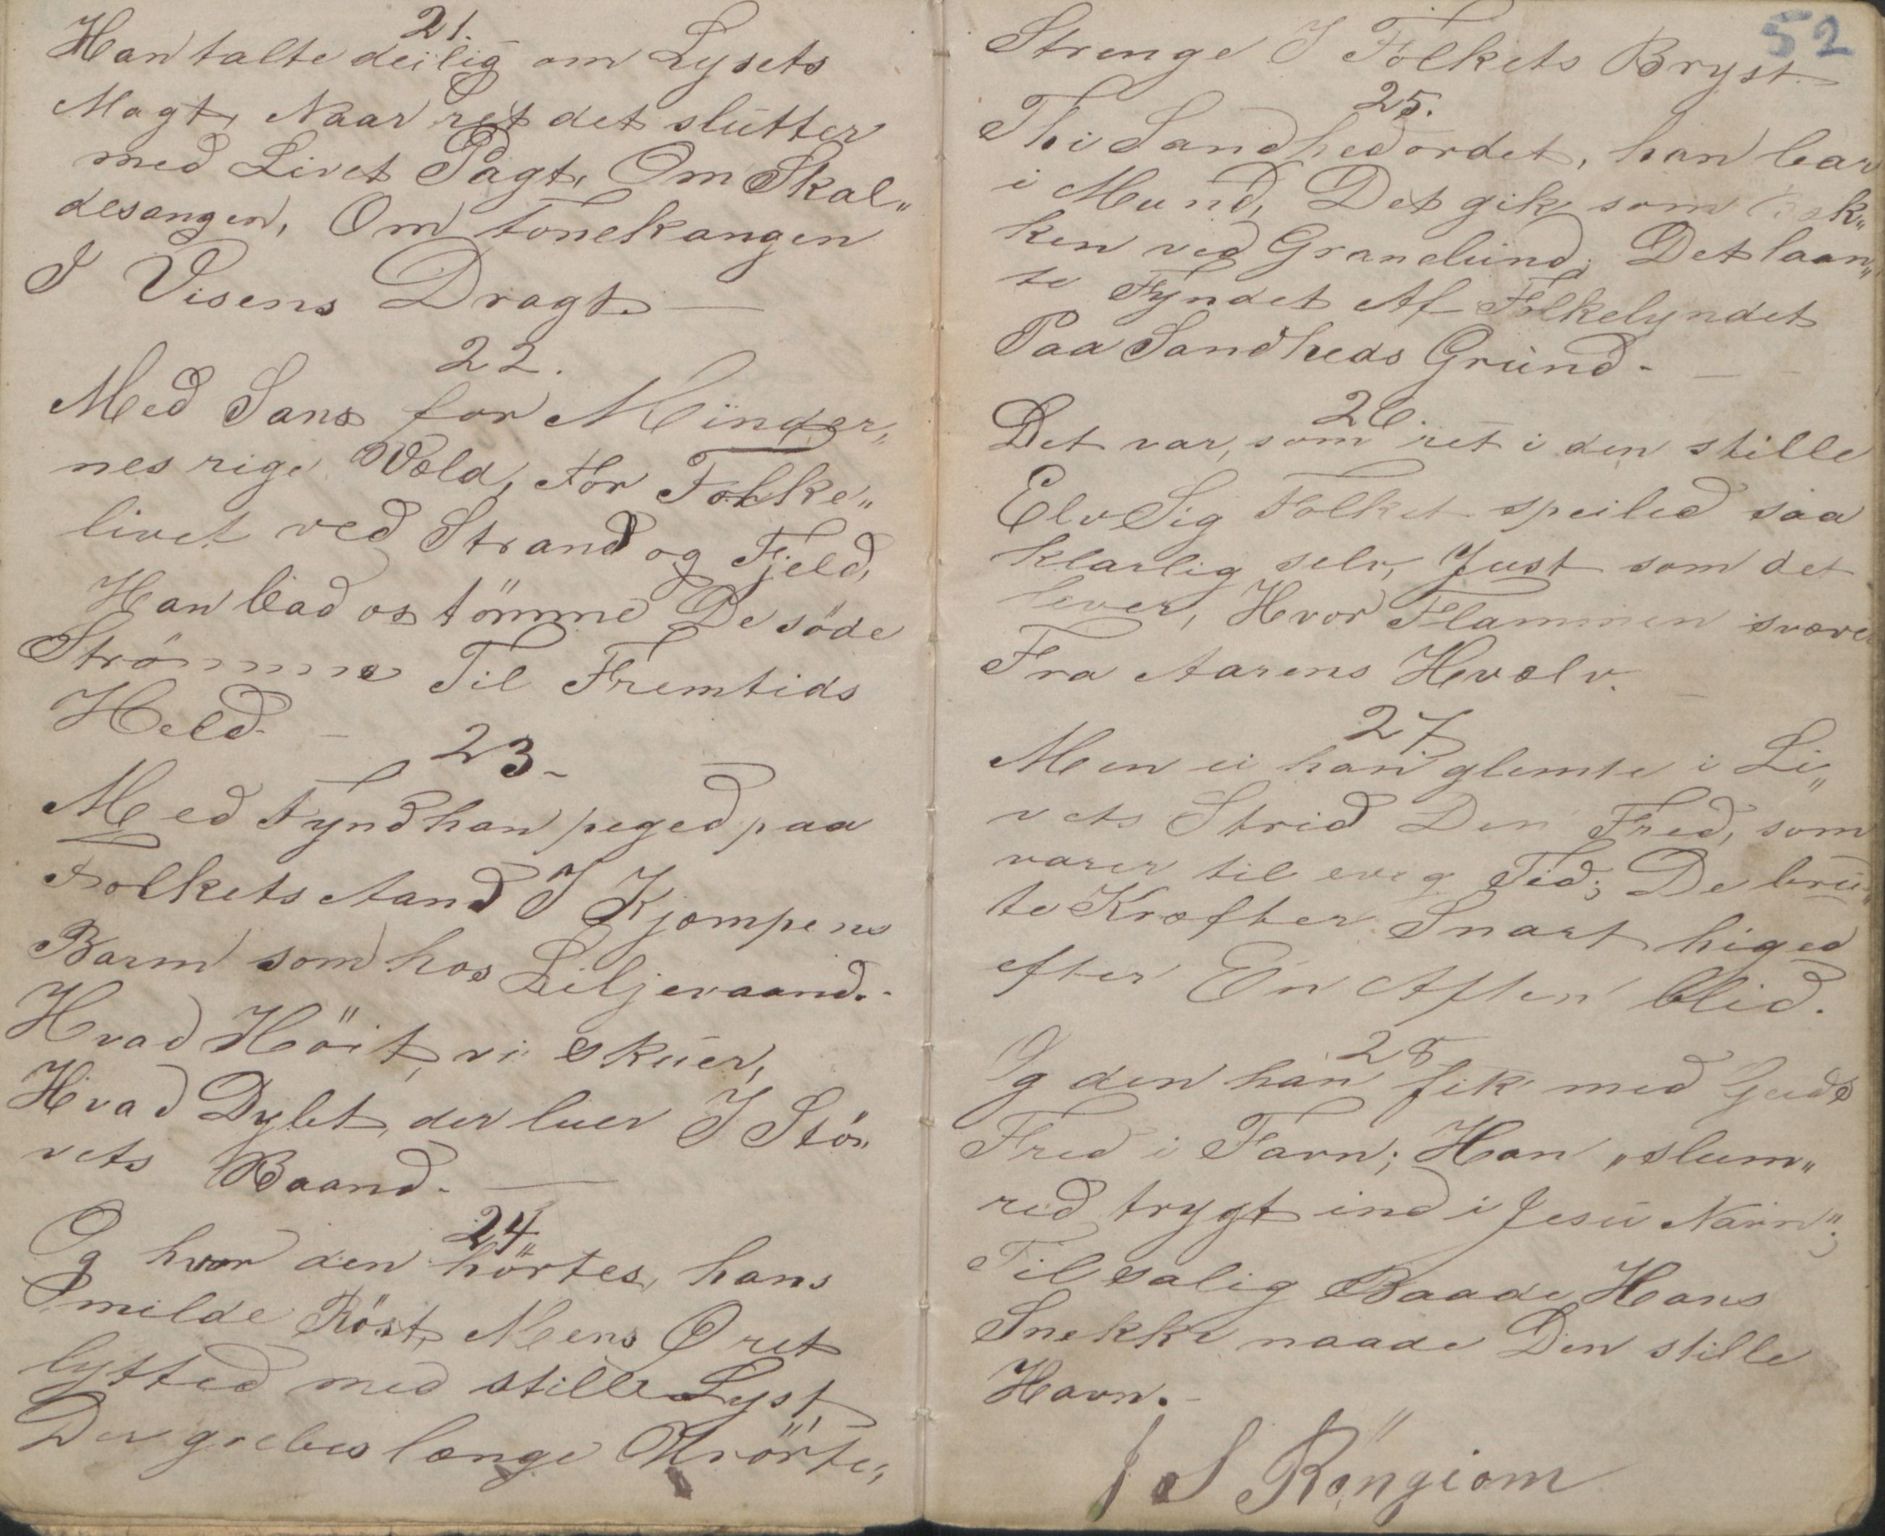 21.
Han talte deilig om Lysets
Magt, Naar ret det slutter
med Livet Pagt, Om Skal„
desangen, Om tonekangen
I Visens Dragt. —
22.
Med Sans for Minder„
nes rige Væld, For Folke„
livet ved Strand og Fjeld,
Han bad os tömme De söde
Strömme Til Fremtids
Held. —
23-
Med Fynd han peged paa
Folkets Aand I Kjæmpens
Barm som hos Liljevaand.-
Hvad Höit, vi skuer,
Hvad Dybt, der luer I Stö„
vets Baand. —
24„
Og hvor den hörtes, hans
milde Röst, Mens Öret
lytted med stille Lyst,
Der grebes længe Urörte„
52
Strenge I Folkets Bryst.
25.
Thi Sandhedordet, han bar
i Mund, Det gik som
ken ved Granelund; Det laan„
te Fyndet Af Folkelyndet
Paa Sandheds Grund. —
26.
Det var, som ret i den stille
Elv Sig Folket speiled saa
klarlig selv, Just som det
lever, Hvor Flammen svæver
Fra Aarens Hvælv. —
27
Men ei han glemte i Li„
vets Strid Den Fred, som
varer til evig Tid; De bru„
te Kræfter Snart higed
efter En Aften blid.
28
Og den han fik med Guds
Fred i Favn; Han „slum„
red trygt ind i Jesu Navn";
Til salig Baade Hans
Snekke naade Den stille
Havn.-
J S Röngiom